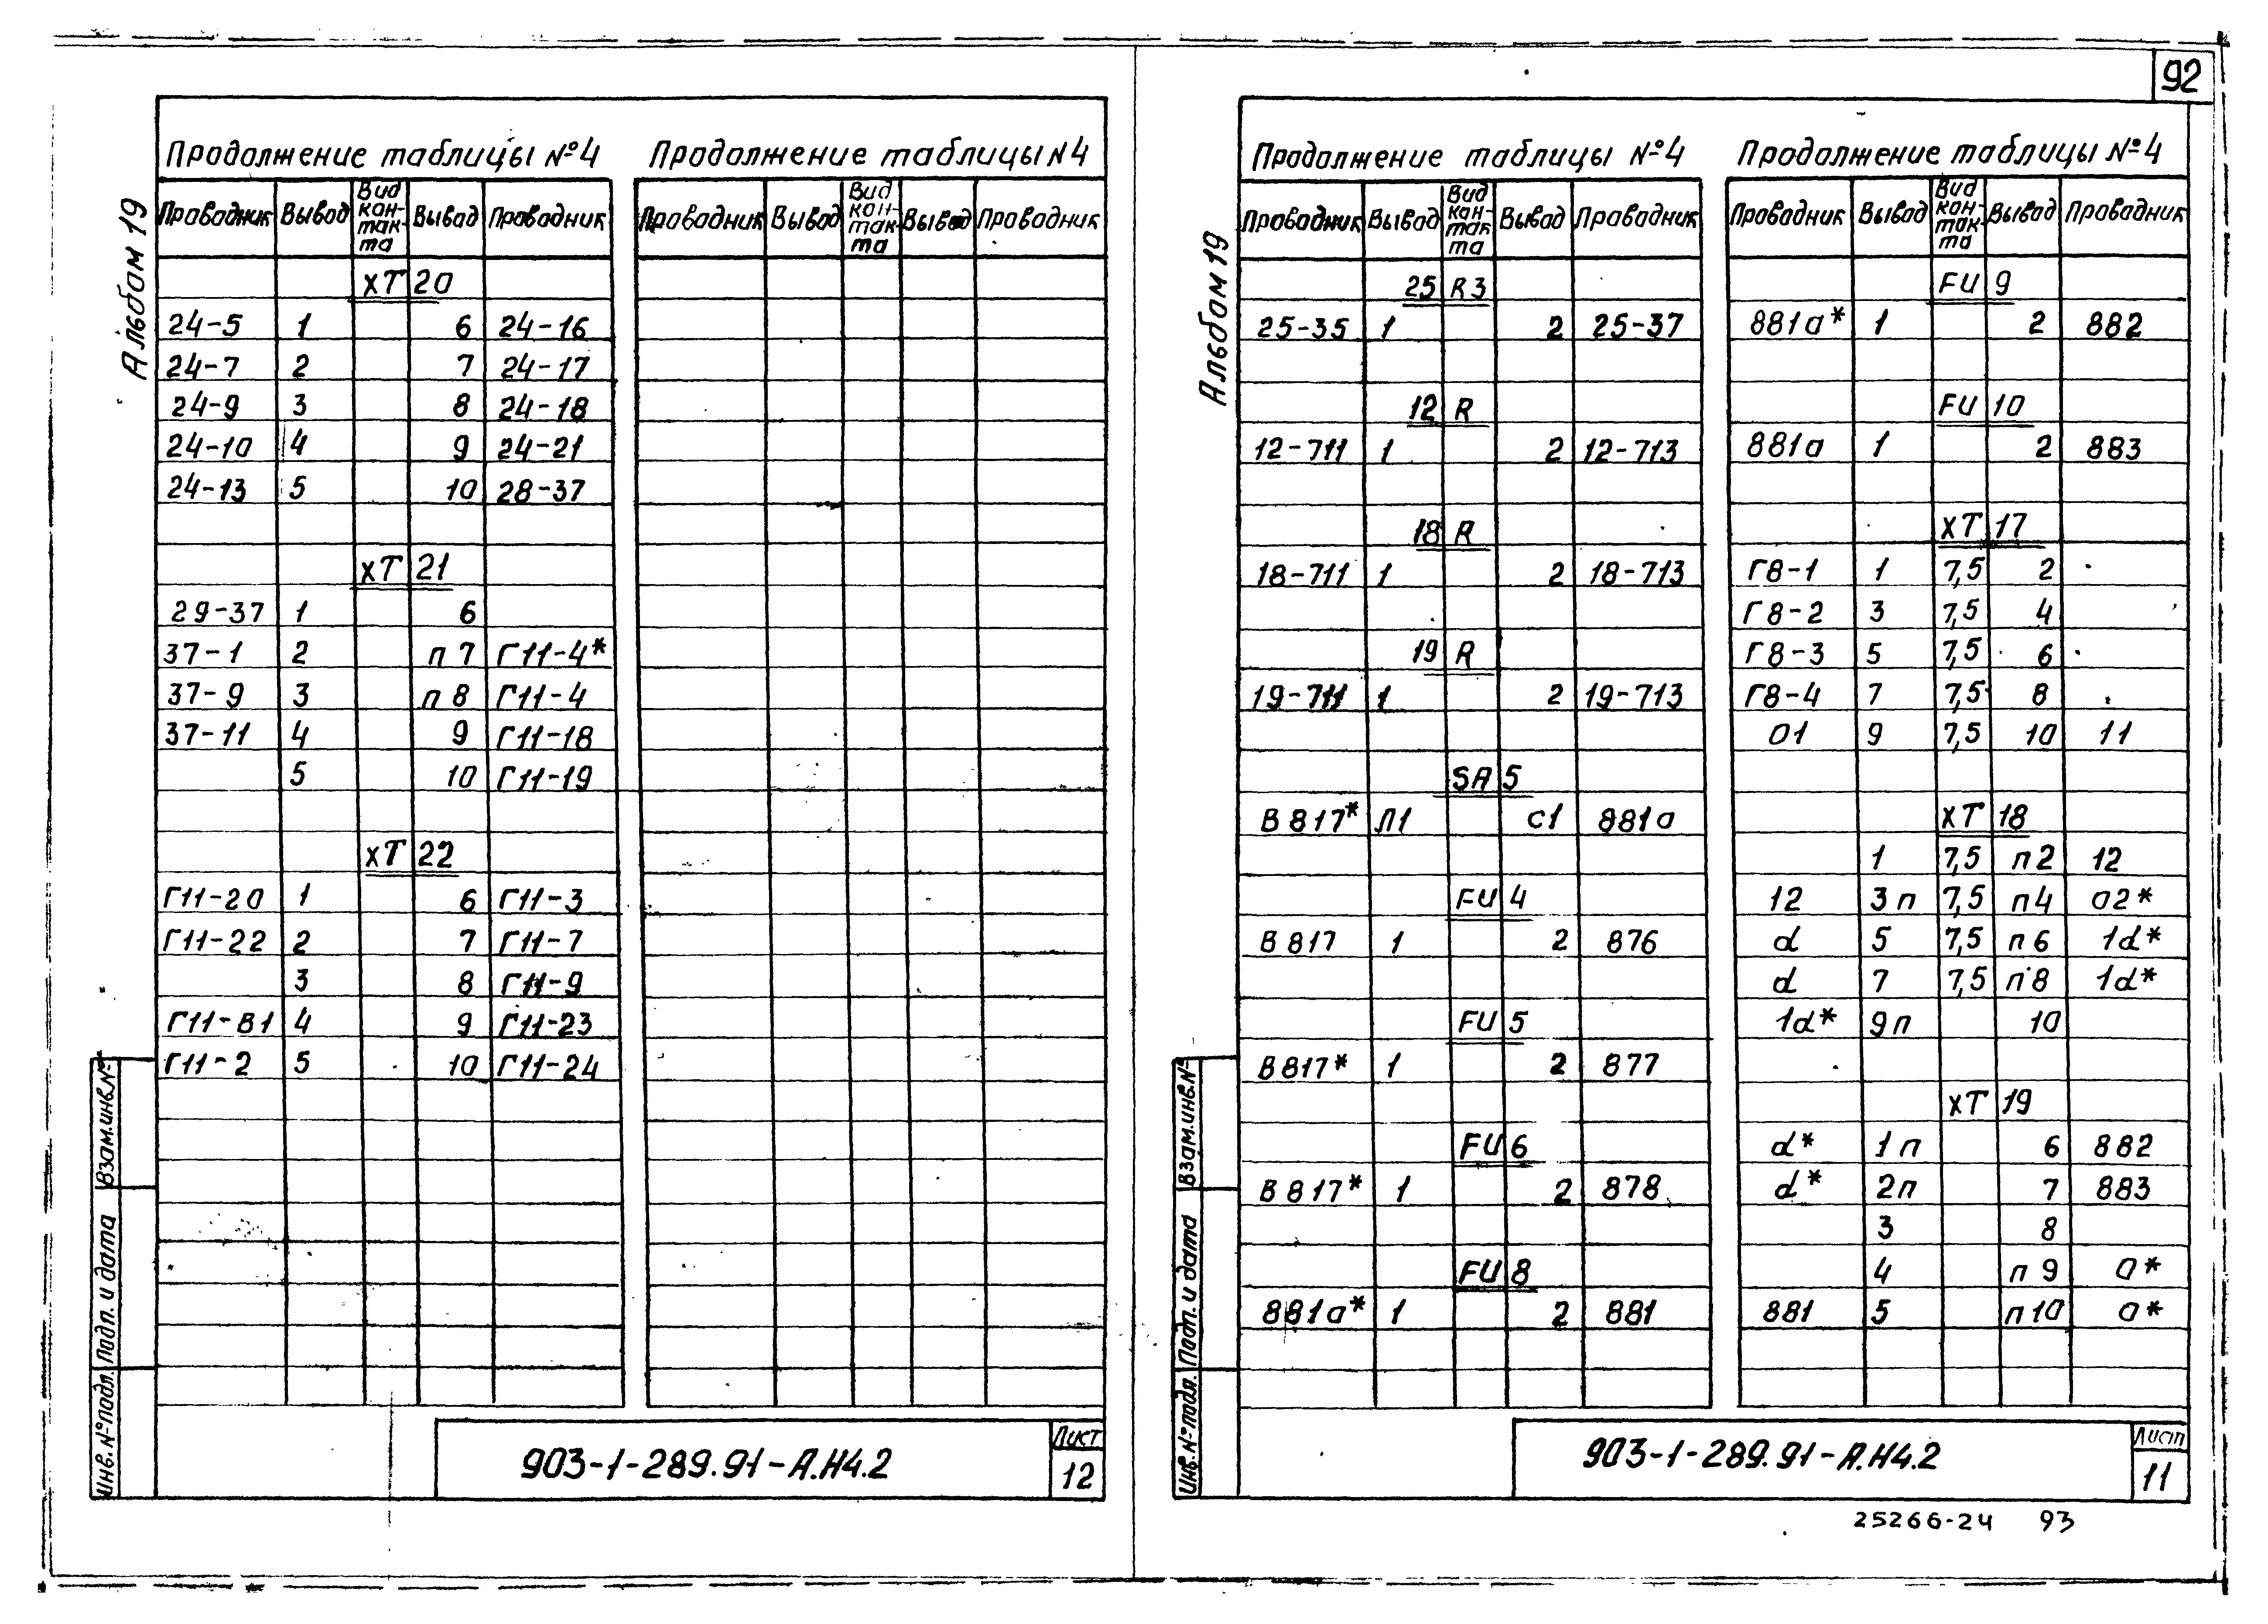 92
Альбом 19
Продолжение таблицы №4
Проводник Вывод Вид контакта Вывод Проводник
ХТ 20
24-5 1 6 24-16
24-7 2 7 24-17
24-9 3 8 24-18
24-10 4 9 24-21
24-13 5 10 28-37
ХТ 21
29-37 1 6
37-1 2 п 7 Г11-4*
37-9 3 п 8 Г11-4
37-11 4 9 Г11-18
5 10 Г11-19
ХТ 22
Г11-20 1 6 Г11-3
Г11-22 2 7 Г11-7
3 8 Г11-9
Г11-В1 4 9 Г11-23
Г11-2 5 10 Г11-24
Продолжение таблицы N4
Проводник Вывод Вид контакта Вывод Проводник
Инв.№подл. Подп. и дата Взам.инв.№
903-1-289.91-А.Н4.2
Лист
12
Альбом 19
Продолжение таблицы №4
Проводник Вывод Вид контакта Вывод Проводник
25 R3
25-35 1 2 25-37
12 R
12-711 1 2 12-713
18 R
18-711 1 2 18-713
19 R
19-711 1 2 19-713
SA 5
В 817* Л1 С1 881а
FU 4
В 817 1 2 876
FU 5
В 817* 1 2 877
FU 6
В 817* 1 2 878
FU 8
881а* 1 2 881
Продолжение таблицы №4
Проводник Вывод Вид контакта Вывод Проводник
FU 9
881а* 1 2 882
FU 10
881а 1 2 883
ХТ 17
Г8-1 1 7,5 2
Г8-2 3 7,5 4
Г8-3 5 7,5 6
Г8-4 7 7,5 8
01 9 7,5 10 11
ХТ 18
1 7,5 п 2 12
12 3 п 7,5 п 4 02*
d 5 7,5 п 6 1d*
d 7 7,5 п 8 1d*
1d* 9 п 10
ХТ 19
d* 1 п 6 882
d* 2 п 7 883
3 8
4 п 9 а*
881 5 п 10 а*
Инв.№подл. Подп. и дата Взам.инв.№
903-1-289.91-А.Н4.2
Лист
11
25266-24 93